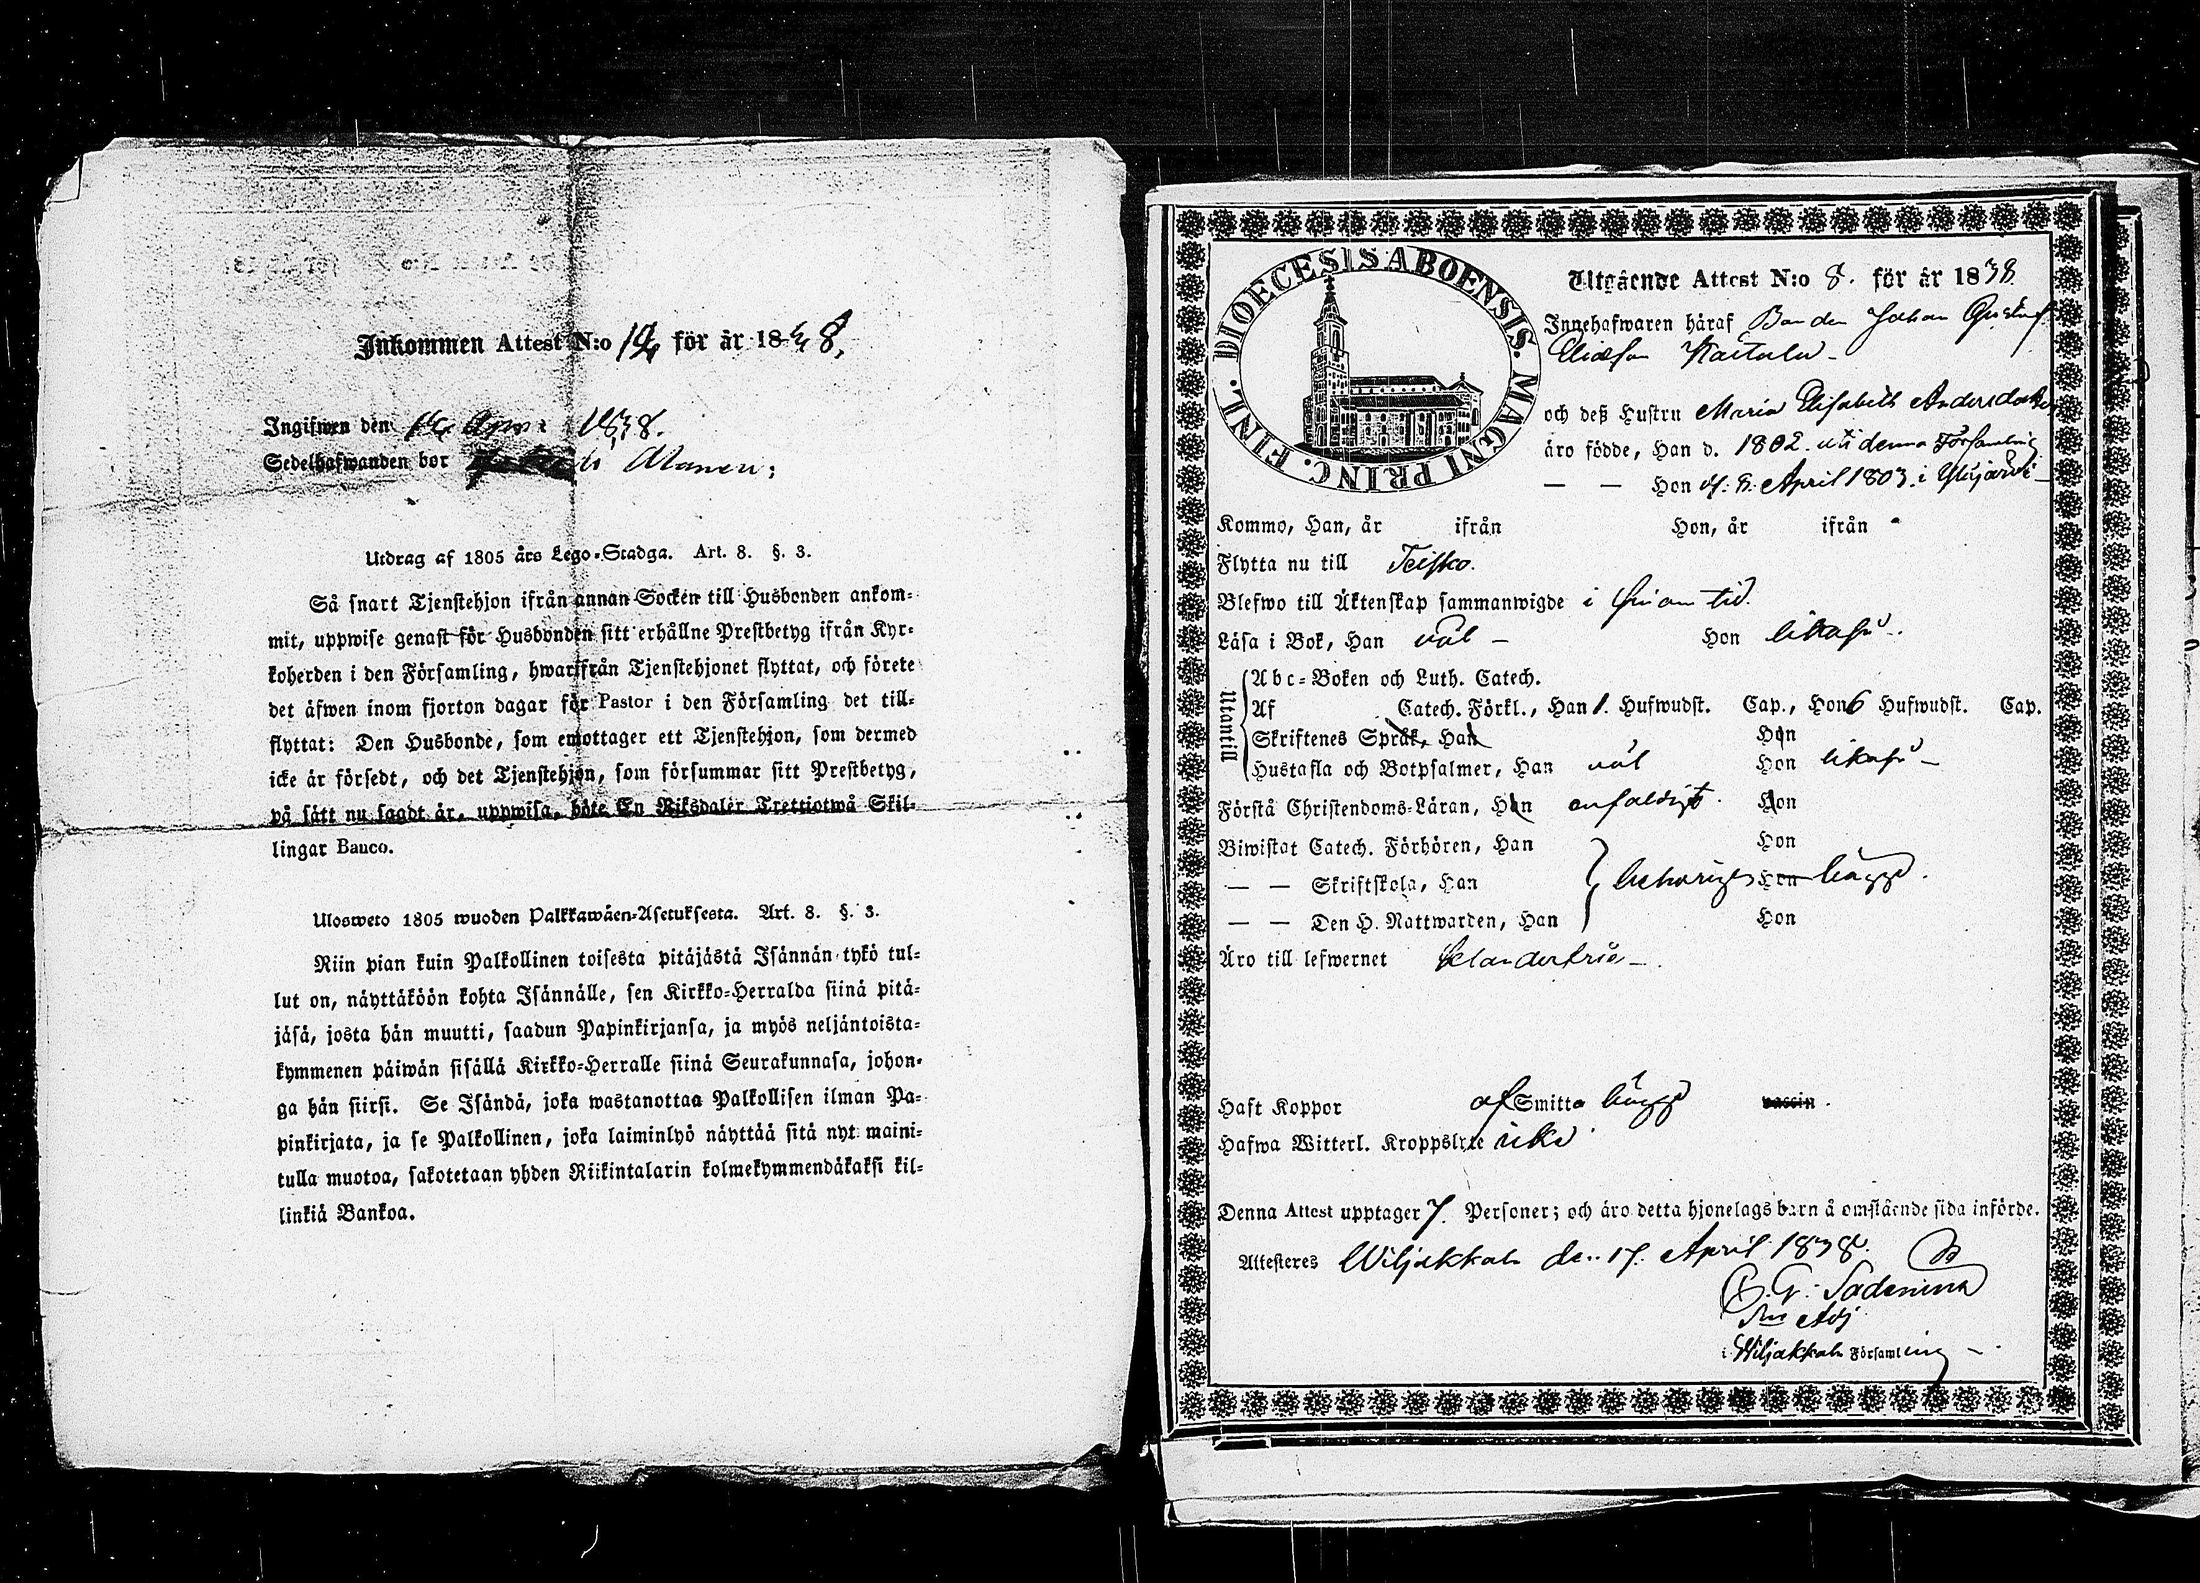 Inkommen Attest N:o för år 1838.
Ingifwen den April 1838.
Sedelhafwanden bor
Utdrag af 1805 års Lego-Stadga. Art. 8. §. 3.
Så snart Tjenstehjon ifrån annan Socken till Husbonden ankom-
mit, uppwise genast för Husbonden sitt erhållne Prestbetyg ifrån Kyr-
koherden i den Församling, hwarifrån Tjenstehjonet flyttat, och förete
det äfwen inom fjorton dagar för Pastor i den Församling det till-
flyttat: Den Husbonde, som emottager ett Tjenstehjon, som dermed
icke är försedt, och det Tjenstehjon, som försummar sitt Prestbetyg,
på sätt nu sagdt är, uppwisa, böte En Riksdaler Trettiotwå Skil-
lingar Banco.
Ulosweto 1805 wuoden Palkkawäen-Asetuksesta. Art. 8. §. 3.
Niin pian kuin Palkollinen toisesta pitäjästä Isännän tykö tul-
lut on, näyttäköön kohta Isännälle, sen Kirkko-Herralda siinä pitä-
jäsä, josta hän muutti, saadun Papinkirjansa, ja myös neljäntoista-
kymmenen päiwän sisällä Kirkko-Herralle siinä Seurakunnasa, johon-
ga hän siirsi. Se Isändä, joka wastanottaa Palkollisen ilman Pa-
pinkirjata, ja se Palkollinen, joka laiminlyö näyttää sitä nyt maini-
tulla muotoa, sakotetaan yhden Riikintalarin kolmekymmendäkaksi kil-
linkiä Bankoa.
DIOECESIS ABOENSIS. MAGNI PRINC. FINL.
Utgående Attest N:o 8. för år 1838
Innehafwaren häraf Bonden Johan Gustaf
Eliasson
och deß Hustru Maria Elisabeth Andersdotter
äro födde, Han d. 1802. uti denna Församling
— — Hon d. 8. April 1803. i Ylöjärvi
Kommo, Han, år ifrån Hon, år ifrån
Flytta nu till Teisko.
Blefwo till Äktenskap sammanwigde i sin tid.
Läsa i Bok, Han väl – Hon likaså.
Utantill
Abc-Boken och Luth. Catech.
Af Catech. Förkl., Han 1. Hufwudst. Cap., Hon 6 Hufwudst. Cap.
Skriftenes Språk, Han Hon
Hustafla och Botpsalmer, Han väl Hon likaså –
Förstå Christendoms-Läran, Han enfaldigt. Hon
Biwistat Catech. Förhören, Han Hon
— — Skriftskola, Han behörigen Hon bägge.
— — Den H. Nattwarden, Han Hon
Äro till lefwernet klanderfria –
Haft Koppor af Smitta bägge vaccin.
Hafwa Witterl. Kroppslyte icke
Denna Attest upptager 7. Personer; och äro detta hjonelags barn å omstående sida införde.
Attesteras Wiljakkala den 17. April 1838.
G. Sadenius
Adj
i Wiljakkala Församling –